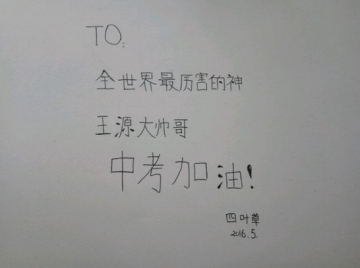 TO:
全世界最厉害的神
王源大帅哥
中考加油!
四叶草
2016.5.